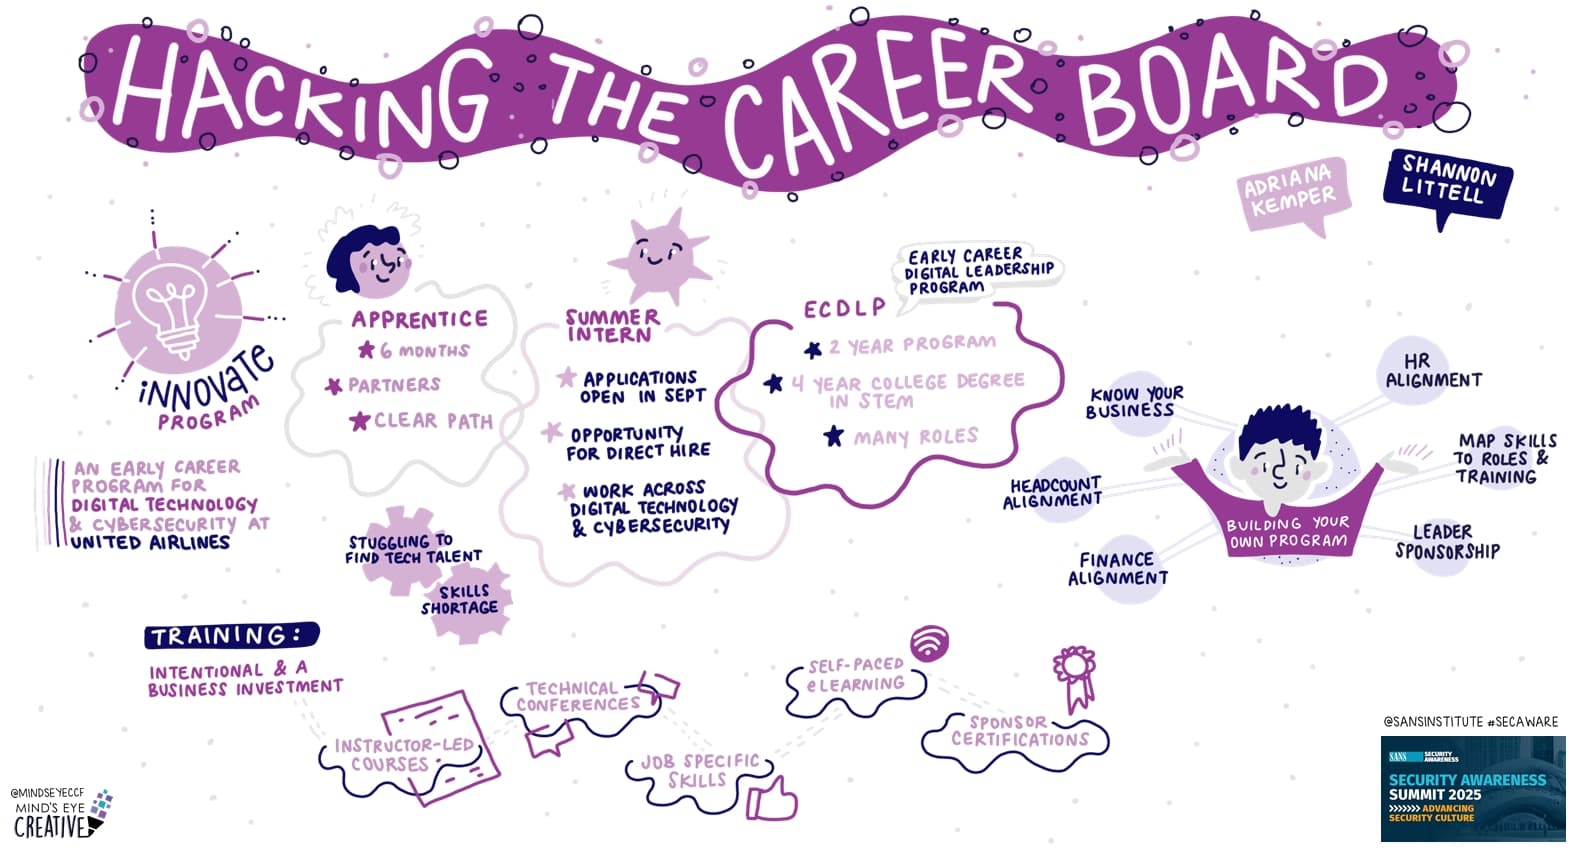 HACKING THE CAREER BOARD
ADRIANA
KEMPER
SHANNON
LITTELL
iNNOVaTE
PROGRAM
AN EARLY CAREER
PROGRAM FOR
DIGITAL TECHNOLOGY
& CYBERSECURITY AT
UNITED AIRLINES
APPRENTICE
6 MONTHS
PARTNERS
CLEAR PATH
STUGGLING TO
FIND TECH TALENT
SKILLS
SHORTAGE
SUMMER
INTERN
APPLICATIONS
OPEN IN SEPT
OPPORTUNITY
FOR DIRECT HIRE
WORK ACROSS
DIGITAL TECHNOLOGY
& CYBERSECURITY
EARLY CAREER
DIGITAL LEADERSHIP
PROGRAM
ECDLP
2 YEAR PROGRAM
4 YEAR COLLEGE DEGREE
IN STEM
MANY ROLES
KNOW YOUR
BUSINESS
HEADCOUNT
ALIGNMENT
FINANCE
ALIGNMENT
BUILDING YOUR
OWN PROGRAM
HR
ALIGNMENT
MAP SKILLS
TO ROLES &
TRAINING
LEADER
SPONSORSHIP
TRAINING:
INTENTIONAL & A
BUSINESS INVESTMENT
INSTRUCTOR-LED
COURSES
TECHNICAL
CONFERENCES
JOB SPECIFIC
SKILLS
SELF-PACED
eLEARNING
SPONSOR
CERTIFICATIONS
@MINDSEYECCF
MIND'S EYE
CREATIVE
@SANSINSTITUTE #SECAWARE
SANS SECURITY
AWARENESS
SECURITY AWARENESS
SUMMIT 2025
>>>>>>> ADVANCING
SECURITY CULTURE